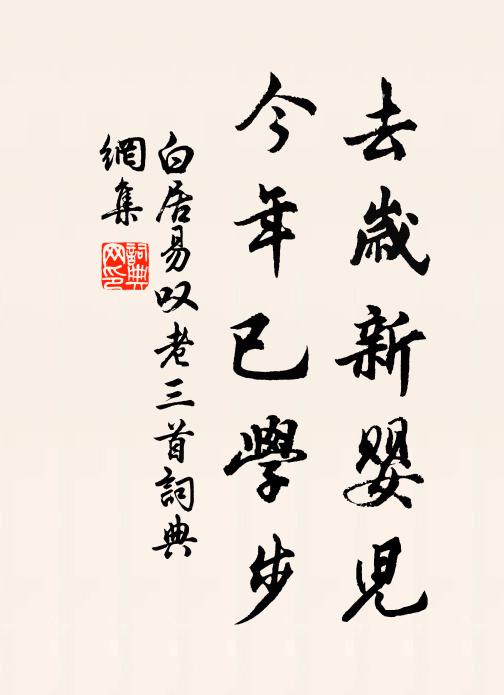 去歲新嬰兒
今年已學步
白居易叹老三首詞典
網集
詞典网印